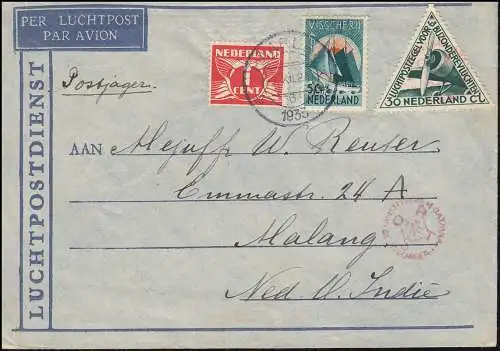 PER LUCHTPOST
PAR AVION
Postjager
LUCHTPOSTDIENST
NEDERLAND
1
CENT
VISSCHERIJ
NEDERLAND
1933
LUCHTPOSTZEGEL VOOR BIJZONDERE VLUCHTEN
30 NEDERLAND CT
AAN Mejuffr W. Reuser
Emmastraat 24 A
Malang
Ned. O. Indië